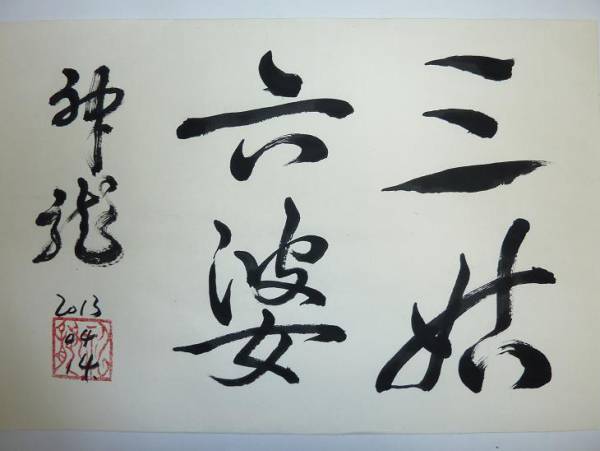 三姑
六婆
神龍
2013
04
14